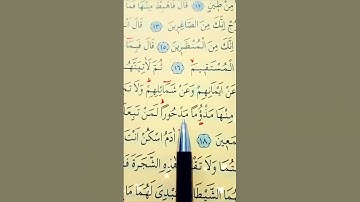 مِنْ طِينٍ ١٢ قَالَ فَاهْبِطْ مِنْهَا فَمَا
رُجْ إِنَّكَ مِنَ الصَّاغِرِينَ ١٣ قَالَ
إِنَّكَ مِنَ الْمُنْظَرِينَ ١٥ قَالَ فَبِمَا
الْمُسْتَقِيمَ ١٦ ثُمَّ لَاٰتِيَنَّهُمْ
عَنْ اَيْمَانِهِمْ وَعَنْ شَمَآئِلِهِمْ وَلَا
مِنْهَا مَذْؤُمًا مَدْحُورًا لَمَنْ تَبِعَكَ
مَعِينَ ١٨ اٰدَمُ اسْكُنْ اَنْتَ
ئْتُمَا وَلَا هٰذِهِ الشَّجَرَةَ
هُمَا لِيُبْدِيَ لَهُمَا مَا